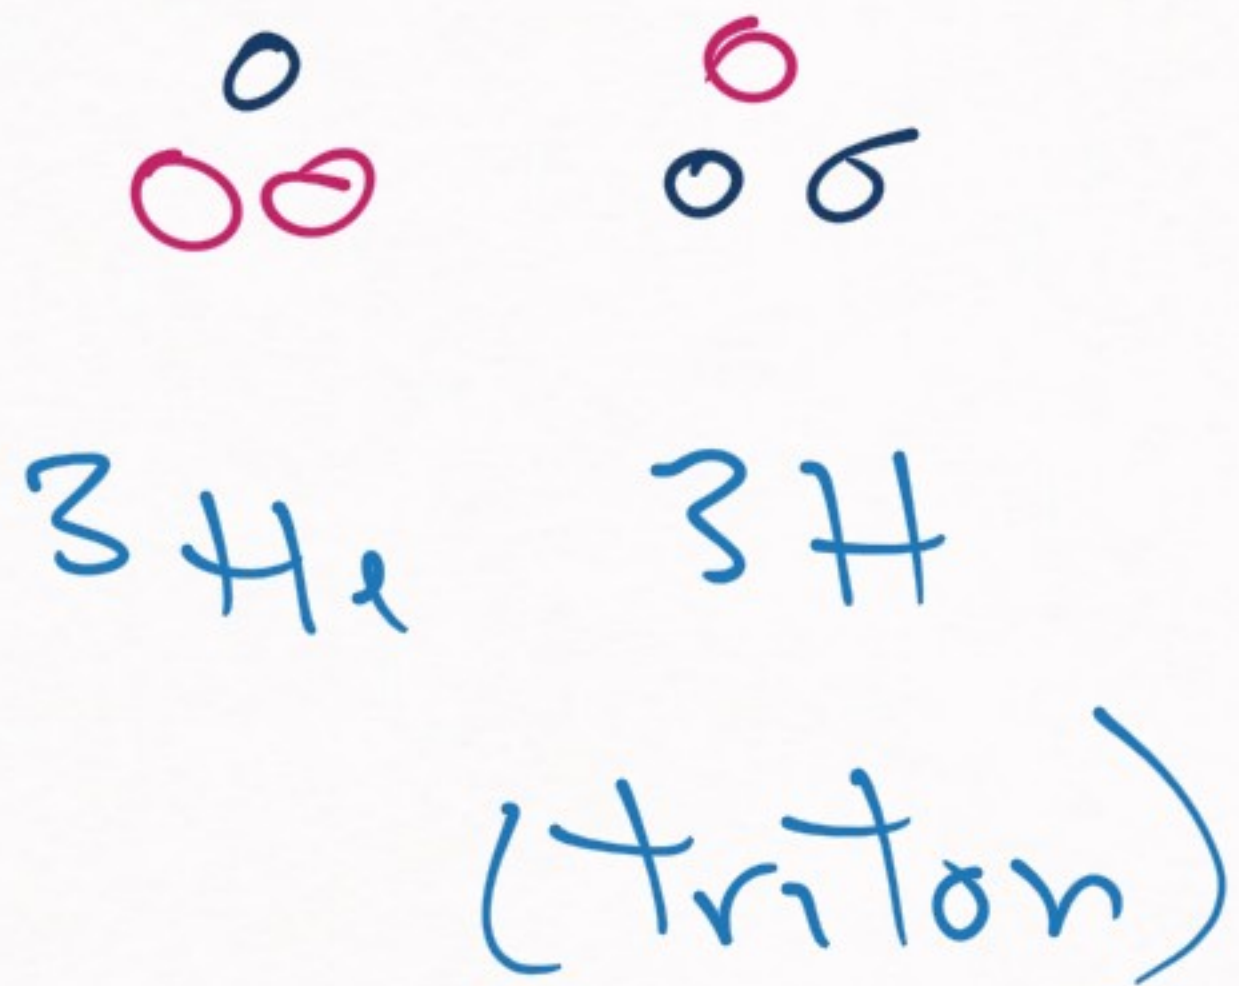 3 He 3 H
(triton)